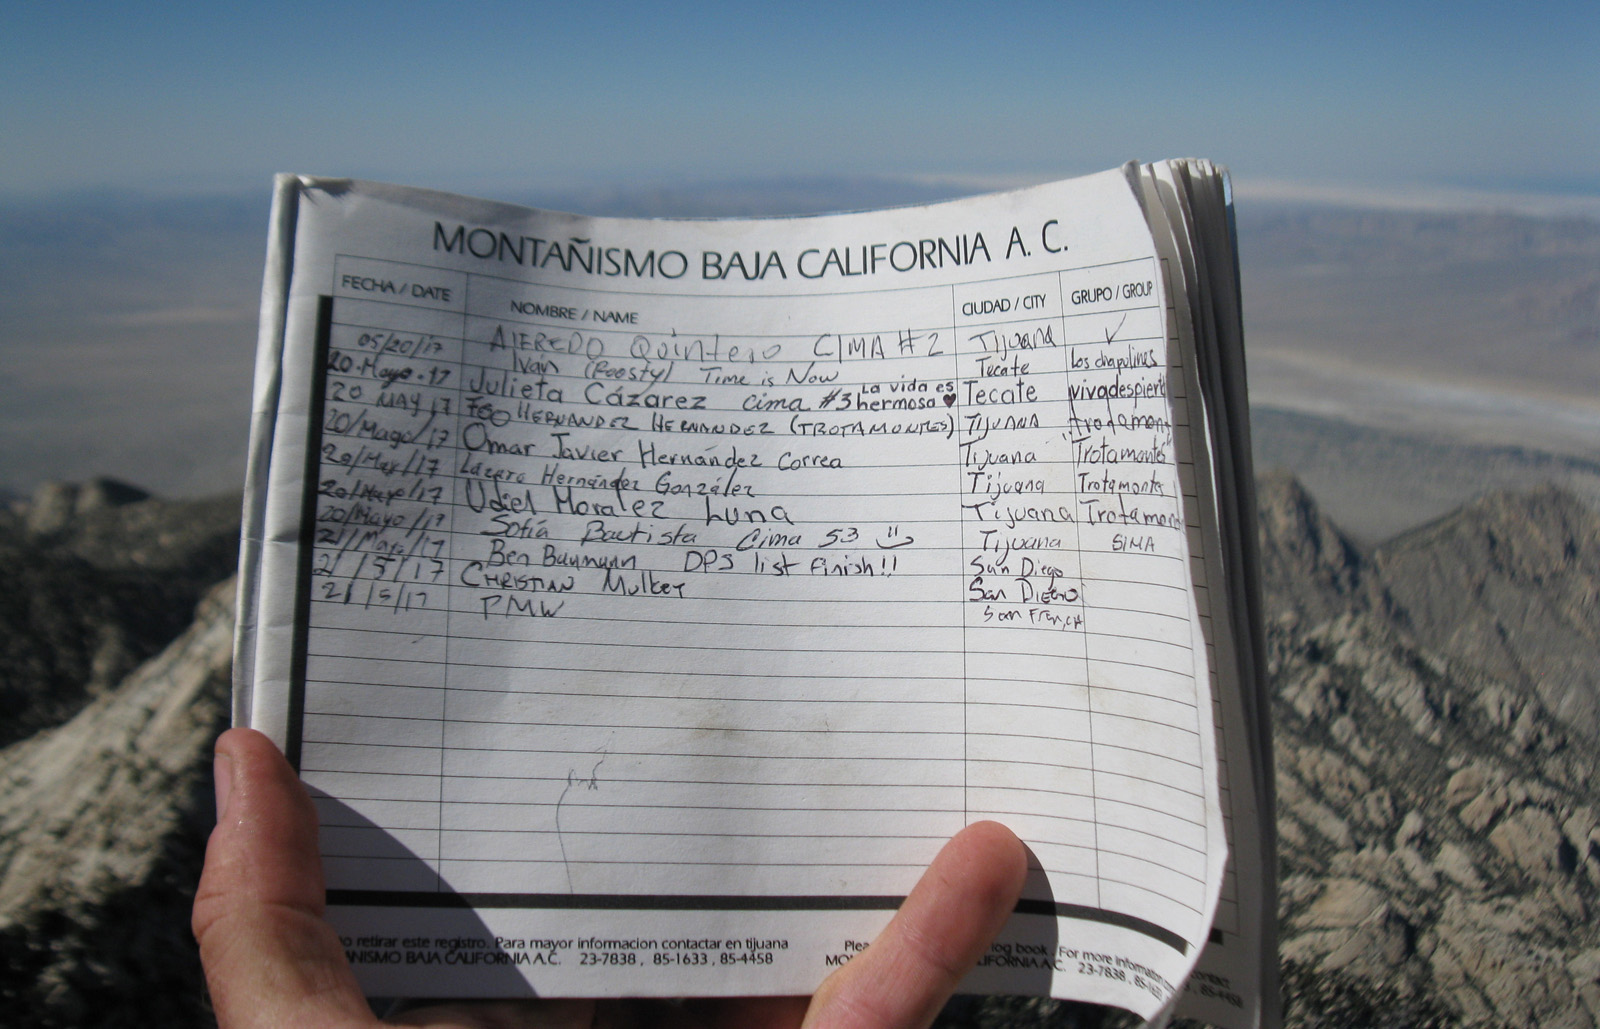 MONTAÑISMO BAJA CALIFORNIA A. C.
FECHA / DATE NOMBRE / NAME CIUDAD / CITY GRUPO / GROUP
05/20/17 AlFREDO Quintero CIMA #2 Tijuana ✓
20-Mayo-17 Iván (Roosty) Time is Now Tecate Los chapulines
20 MAY 17 Julieta Cázarez cima #3 La vida es hermosa ♥ Tecate vivadespiert
20/Mayo/17 FCO HERNANDEZ HERNANDEZ (TROTAMONTES) TIJUANA trotamont
20/May/17 Omar Javier Hernández Correa Tijuana Trotamontes
20/Mayo/17 Lázaro Hernández González Tijuana Trotamontes
20/Mayo/17 Udiel Morales Luna Tijuana Trotamon
21/Mayo/17 Sofía Bautista Cima 53 Tijuana SIMA
21/5/17 Ben Baumann DPS list finish!! San Diego
21/5/17 CHRISTIAN Mulkey San DIEGO
PMW San
no retirar este registro. Para mayor informacion contactar en tijuana
ANISMO BAJA CALIFORNIA A.C. 23-7838, 85-1633, 85-4458
Plea log book. For more informatio
MON IFORNIA A.C. 23-7838, 85-163